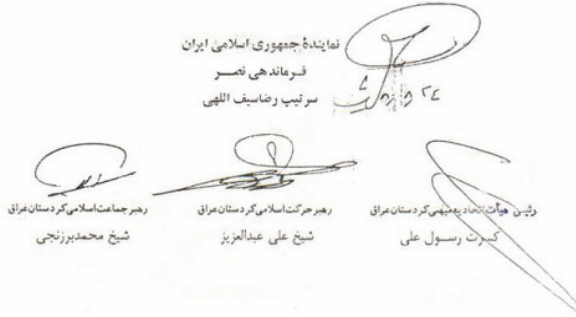 نمایندهٔ جمهوری اسلامی ایران
فرماندهی نصر
سرتیپ رضاسیف اللهی
رئیس هیأت اتحادیه میهنی کردستان عراق
کسرت رسول علی
رهبر حرکت اسلامی کردستان عراق
شیخ علی عبدالعزیز
رهبر جماعت اسلامی کردستان عراق
شیخ محمدبرزنجی